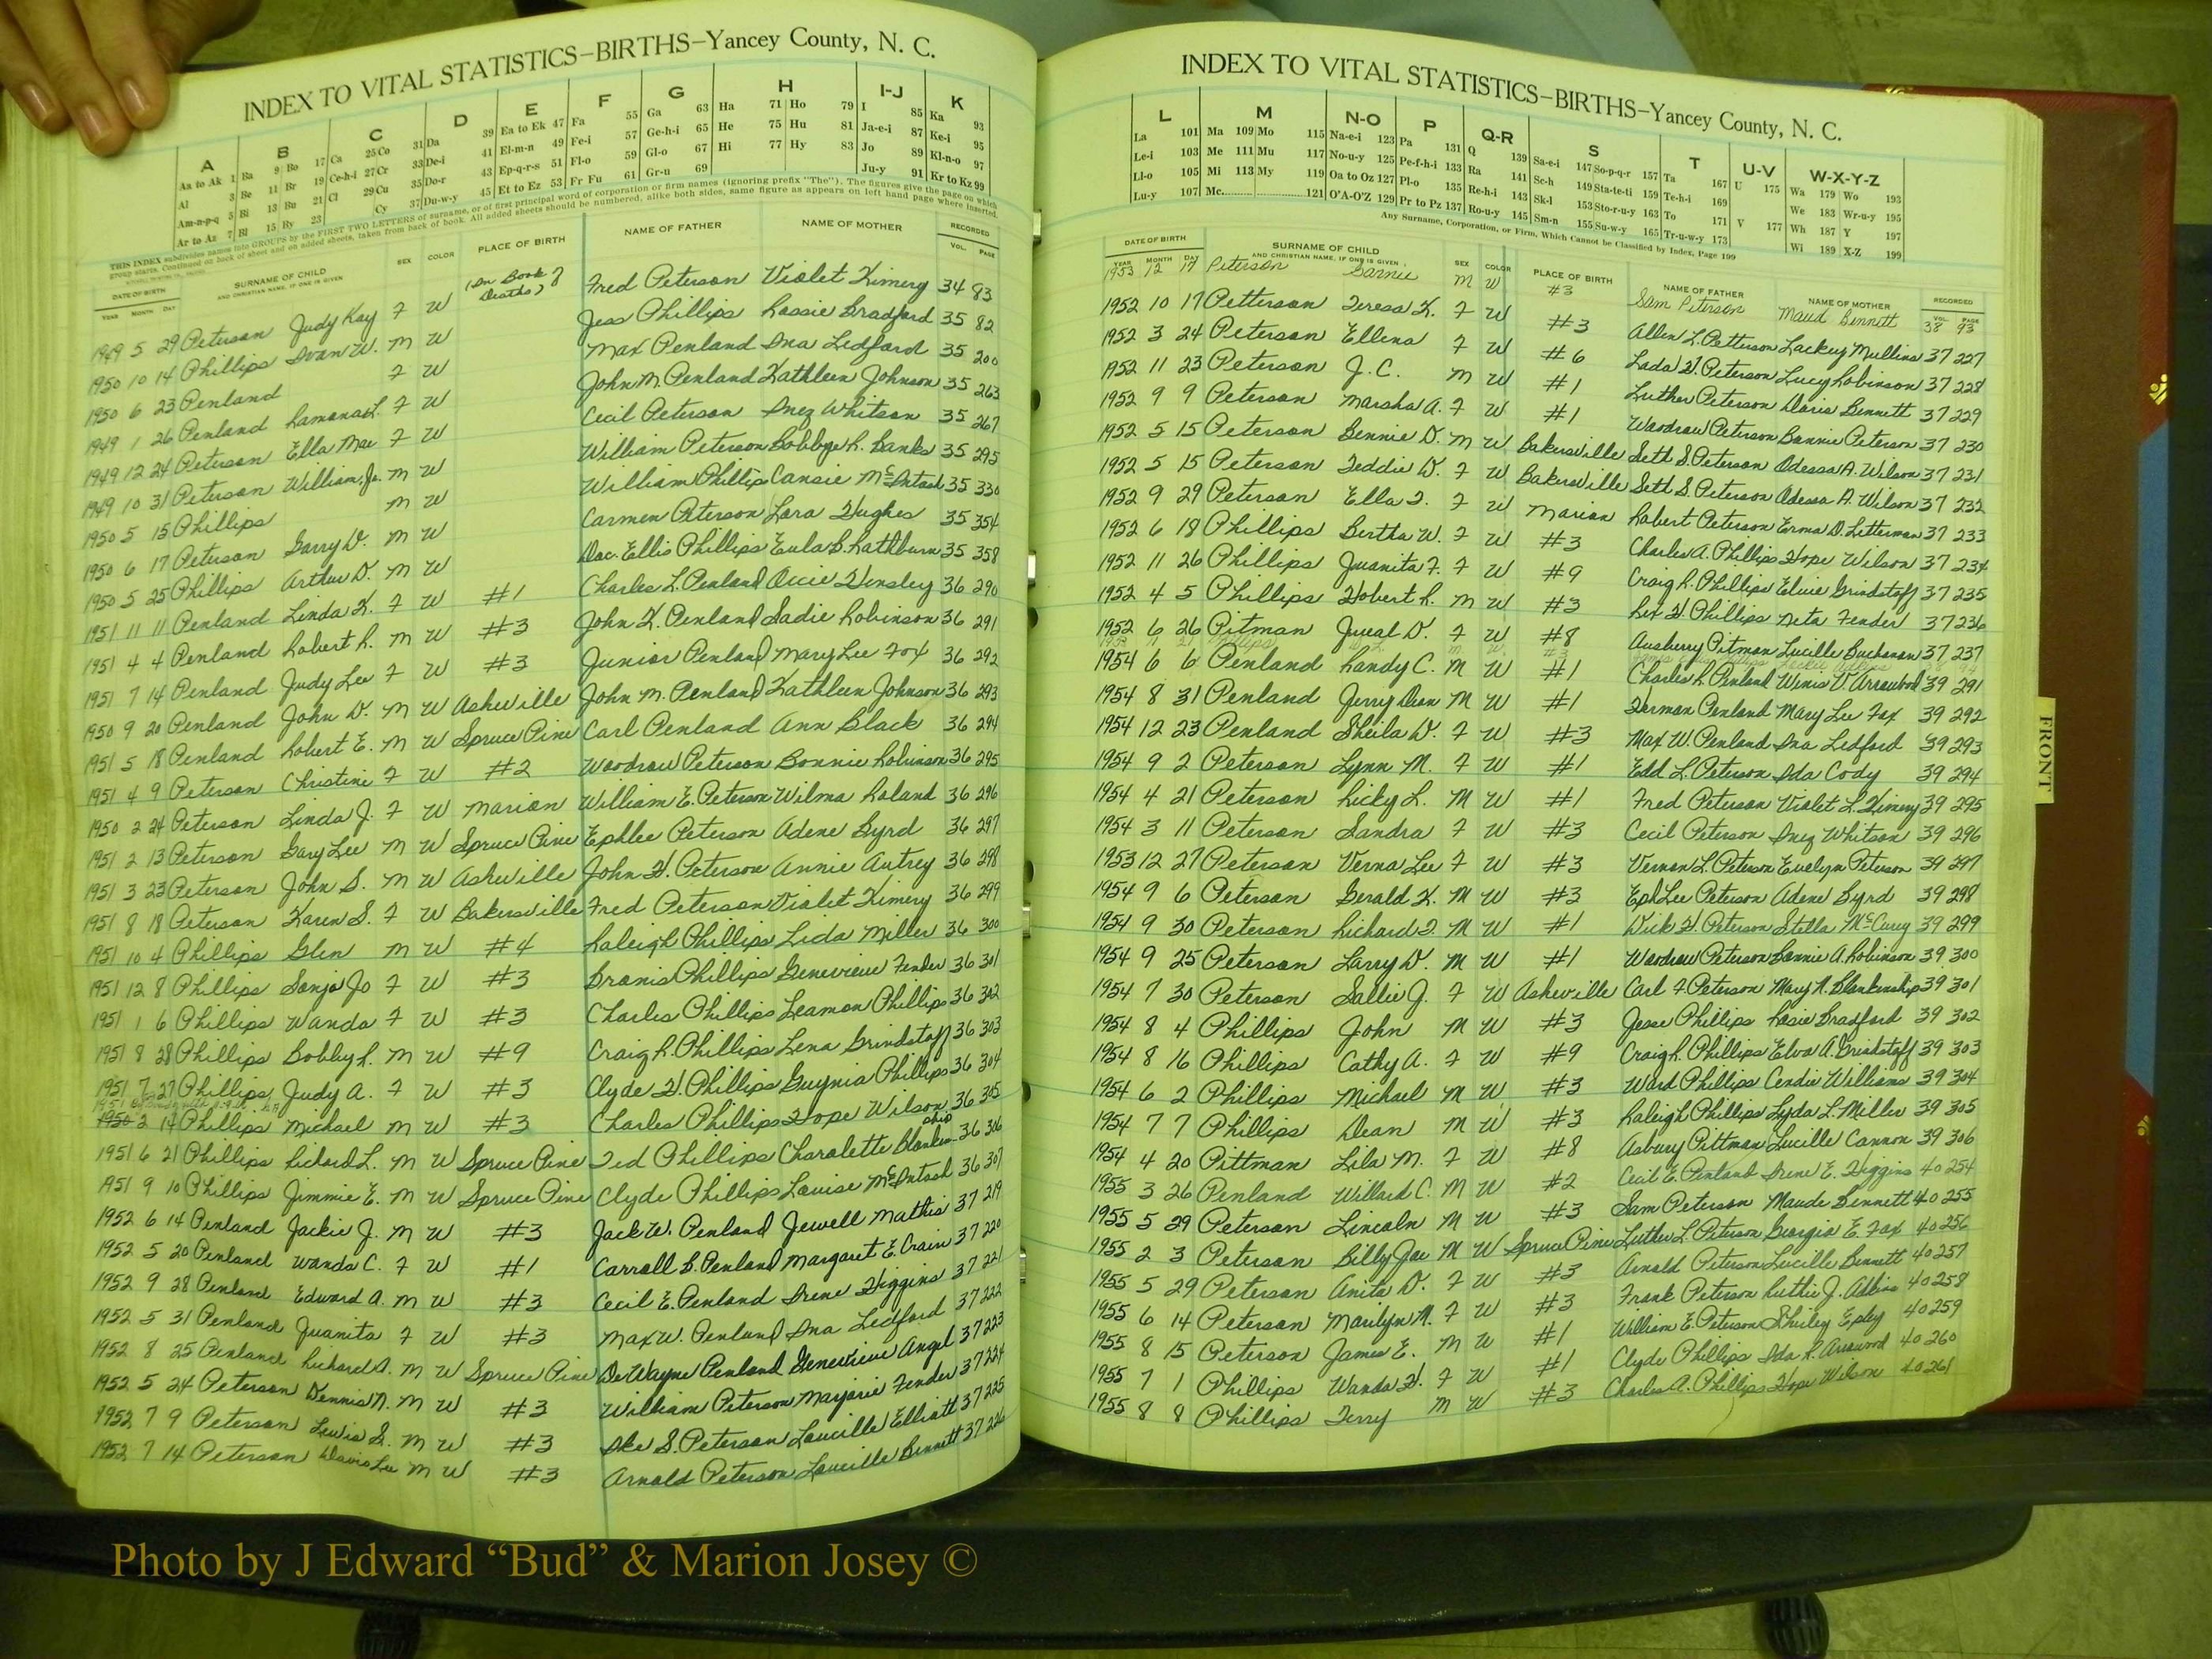 INDEX TO VITAL STATISTICS—BIRTHS—Yancey County, N. C.
A B C D E F G H I-J K
Aa to Ak 1 Ba 9 Bo 17 Ca 25 Co 31 Da 39 Ea to Ek 47 Fa 55 Ga 63 Ha 71 Ho 79 I 85 Ka 93
Al 3 Be 11 Br 19 Ce-h-i 27 Cr 33 De-i 41 El-m-n 49 Fe-i 57 Ge-h-i 65 He 75 Hu 81 Ja-e-i 87 Ke-i 95
Am-n-p-q 5 Bi 13 Bu 21 Cl 29 Cu 35 Do-r 43 Ep-q-r-s 51 Fl-o 59 Gl-o 67 Hi 77 Hy 83 Jo 89 Kl-n-o 97
Ar to Az 7 Bl 15 By 23 Cy 37 Du-w-y 45 Et to Ez 53 Fr Fu 61 Gr-u 69 Ju-y 91 Kr to Kz 99
THIS INDEX subdivides names into GROUPS by the FIRST TWO LETTERS of surname, or of first principal word of corporation or firm names (ignoring prefix "The"). The figures give the page on which
group starts. Continued on back of sheet and on added sheets, taken from back of book. All added sheets should be numbered, alike both sides, same figure as appears on left hand page where inserted.
DATE OF BIRTH SURNAME OF CHILD SEX COLOR PLACE OF BIRTH NAME OF FATHER NAME OF MOTHER RECORDED
YEAR MONTH DAY AND CHRISTIAN NAME, IF ONE IS GIVEN VOL. PAGE
1949 5 29 Peterson Judy Kay F W (On Book 8 Deaths) Fred Peterson Violet Kimery 34 83
1950 10 14 Phillips Ivan W. M W Jess Phillips Rossie Bradford 35 82
1950 6 23 Penland F W Max Penland Ina Ledford 35 200
1949 1 26 Penland Ramona L. F W John M. Penland Kathleen Johnson 35 263
1949 12 24 Peterson Ella Mae F W Cecil Peterson Inez Whitson 35 267
1949 10 31 Peterson William, Jr. M W William Peterson Bobbye R. Banks 35 295
1950 5 15 Phillips M W William Phillips Cansie McIntosh 35 330
1950 6 17 Peterson Garry D. M W Carmen Peterson Lora Hughes 35 354
1950 5 25 Phillips Arthur D. M W Doc. Ellis Phillips Eula B. Rathburn 35 358
1951 11 11 Penland Linda K. F W #1 Charles L. Penland Ocie Hensley 36 290
1951 4 4 Penland Robert R. M W #3 John K. Penland Sadie Robinson 36 291
1951 7 14 Penland Judy Lee F W #3 Junior Penland Mary Lee Fox 36 292
1950 9 20 Penland John D. M W Asheville John M. Penland Kathleen Johnson 36 293
1951 5 18 Penland Robert E. M W Spruce Pine Carl Penland Ann Black 36 294
1951 4 9 Peterson Christine F W #2 Woodrow Peterson Bonnie Robinson 36 295
1950 2 24 Peterson Linda J. F W Marion William E. Peterson Wilma Roland 36 296
1951 2 13 Peterson Gary Lee M W Spruce Pine Ephlee Peterson Adene Byrd 36 297
1951 3 23 Peterson John S. M W Asheville John H. Peterson Annie Autrey 36 298
1951 8 18 Peterson Karen S. F W Bakersville Fred Peterson Violet Kimery 36 299
1951 10 4 Phillips Glen M W #4 Raleigh Phillips Lida Miller 36 300
1951 12 8 Phillips Sonja Jo F W #3 Bronis Phillips Genevieve Fender 36 301
1951 1 6 Phillips Wanda F W #3 Charles Phillips Leamon Phillips 36 302
1951 8 28 Phillips Bobby R. M W #9 Craig R. Phillips Lena Grindstaff 36 303
1951 7 27 Phillips Judy A. F W #3 Clyde H. Phillips Guynia Phillips 36 304
1950 2 14 Phillips Michael M W #3 Charles Phillips Hope Wilson 36 305
1951 6 21 Phillips Richard L. M W Spruce Pine Ted Phillips Charolette Blankenship 36 306
1951 9 10 Phillips Jimmie E. M W Spruce Pine Clyde Phillips Louise McIntosh 36 307
1952 6 14 Penland Jackie J. M W #3 Jack W. Penland Jewell Mathis 37 219
1952 5 20 Penland Wanda C. F W #1 Carroll B. Penland Margaret E. Crain 37 220
1952 9 28 Penland Edward A. M W #3 Cecil E. Penland Irene Higgins 37 221
1952 5 31 Penland Juanita F W #3 Max W. Penland Ina Ledford 37 222
1952 8 25 Penland Richard A. M W Spruce Pine DeWayne Penland Genevieve Angel 37 223
1952 5 24 Peterson Dennis N. M W #3 William Peterson Marjorie Fender 37 224
1952 7 9 Peterson Lewis S. M W #3 Ike S. Peterson Loucille Elliott 37 225
1952 7 14 Peterson Davis Lee M W #3 Arnold Peterson Loucille Bennett 37 226
INDEX TO VITAL STATISTICS—BIRTHS—Yancey County, N. C.
L M N-O P Q-R S T U-V W-X-Y-Z
La 101 Ma 109 Mo 115 Na-e-i 123 Pa 131 Q 139 Sa-e-i 147 So-p-q-r 157 Ta 167 U 175 Wa 179 Wo 193
Le-i 103 Me 111 Mu 117 No-u-y 125 Pe-f-h-i 133 Ra 141 Sc-h 149 Sta-te-ti 159 Te-h-i 169 We 183 Wr-u-y 195
Ll-o 105 Mi 113 My 119 Oa to Oz 127 Pl-o 135 Re-h-i 143 Sk-l 153 Sto-r-u-y 163 To 171 V 177 Wh 187 Y 197
Lu-y 107 Mc 121 O'A-O'Z 129 Pr to Pz 137 Ro-u-y 145 Sm-n 155 Su-w-y 165 Tr-u-w-y 173 Wi 189 X-Z 199
Any Surname, Corporation, or Firm, Which Cannot be Classified by Index, Page 199
DATE OF BIRTH SURNAME OF CHILD SEX COLOR PLACE OF BIRTH NAME OF FATHER NAME OF MOTHER RECORDED
YEAR MONTH DAY AND CHRISTIAN NAME, IF ONE IS GIVEN VOL. PAGE
1953 12 17 Peterson Garnie M W #3 Sam Peterson Maud Bennett 38 93
1952 10 17 Petterson Teresa K. F W #3 Allen L. Petterson Lackey Mullins 37 227
1952 3 24 Peterson Ellena F W #6 Lada H. Peterson Lucy Robinson 37 228
1952 11 23 Peterson J. C. M W #1 Luther Peterson Doris Bennett 37 229
1952 9 9 Peterson Marsha A. F W #1 Woodrow Peterson Bonnie Peterson 37 230
1952 5 15 Peterson Bennie D. M W Bakersville Seth S. Peterson Odessa A. Wilson 37 231
1952 5 15 Peterson Teddie D. F W Bakersville Seth S. Peterson Odessa A. Wilson 37 232
1952 9 29 Peterson Ella F. F W Marion Robert Peterson Erma D. Letterman 37 233
1952 6 18 Phillips Bertha W. F W #3 Charles A. Phillips Hope Wilson 37 234
1952 11 26 Phillips Juanita F. F W #9 Craig R. Phillips Elvie Grindstaff 37 235
1952 4 5 Phillips Hobert R. M W #3 Rex H. Phillips Neta Fender 37 236
1952 6 26 Pitman Jweal D. F W #8 Ausberry Pitman Lucille Buchanan 37 237
1954 6 6 Penland Randy C. M W #1 Charles R. Penland Wenis V. Arrowood 39 291
1954 8 31 Penland Jerry Dean M W #1 Herman Penland Mary Lee Fox 39 292
1954 12 23 Penland Sheila D. F W #3 Max W. Penland Ina Ledford 39 293
1954 9 2 Peterson Lynn M. F W #1 Edd L. Peterson Ida Cody 39 294
1954 4 21 Peterson Ricky L. M W #1 Fred Peterson Violet L. Kimery 39 295
1954 3 11 Peterson Sandra F W #3 Cecil Peterson Inez Whitson 39 296
1953 12 27 Peterson Verna Lee F W #3 Vernon L. Peterson Evelyn Peterson 39 297
1954 9 6 Peterson Gerald K. M W #3 Eph Lee Peterson Adene Byrd 39 298
1954 9 30 Peterson Richard F. M W #1 Dick H. Peterson Stella McCurry 39 299
1954 9 25 Peterson Larry D. M W #1 Woodrow Peterson Bonnie A. Robinson 39 300
1954 7 30 Peterson Sallie J. F W Asheville Carl F. Peterson Mary N. Blankinship 39 301
1954 8 4 Phillips John M W #3 Jesse Phillips Rosie Bradford 39 302
1954 8 16 Phillips Cathy A. F W #9 Craig R. Phillips Elva A. Grindstaff 39 303
1954 6 2 Phillips Michael M W #3 Ward Phillips Cendie Williams 39 304
1954 7 7 Phillips Dean M W #3 Raleigh Phillips Lyda L. Miller 39 305
1954 4 20 Pittman Lila M. F W #8 Asbury Pittman Lucille Cannon 39 306
1955 3 26 Penland Willard C. M W #2 Cecil E. Penland Irene E. Higgins 40 254
1955 5 29 Peterson Lincoln M W #3 Sam Peterson Maude Bennett 40 255
1955 2 3 Peterson Billy Joe M W Spruce Pine Luther L. Peterson Georgia E. Fox 40 256
1955 5 29 Peterson Anita D. F W #3 Arnold Peterson Lucille Bennett 40 257
1955 6 14 Peterson Marilyn N. F W #3 Frank Peterson Ruthie J. Adkins 40 258
1955 8 15 Peterson James E. M W #1 William E. Peterson Shirley Epley 40 259
1955 7 1 Phillips Wanda H. F W #1 Clyde Phillips Ida R. Arrowood 40 260
1955 8 8 Phillips Terry M W #3 Charles A. Phillips Hope Wilson 40 261
FRONT
Photo by J Edward “Bud” & Marion Josey ©